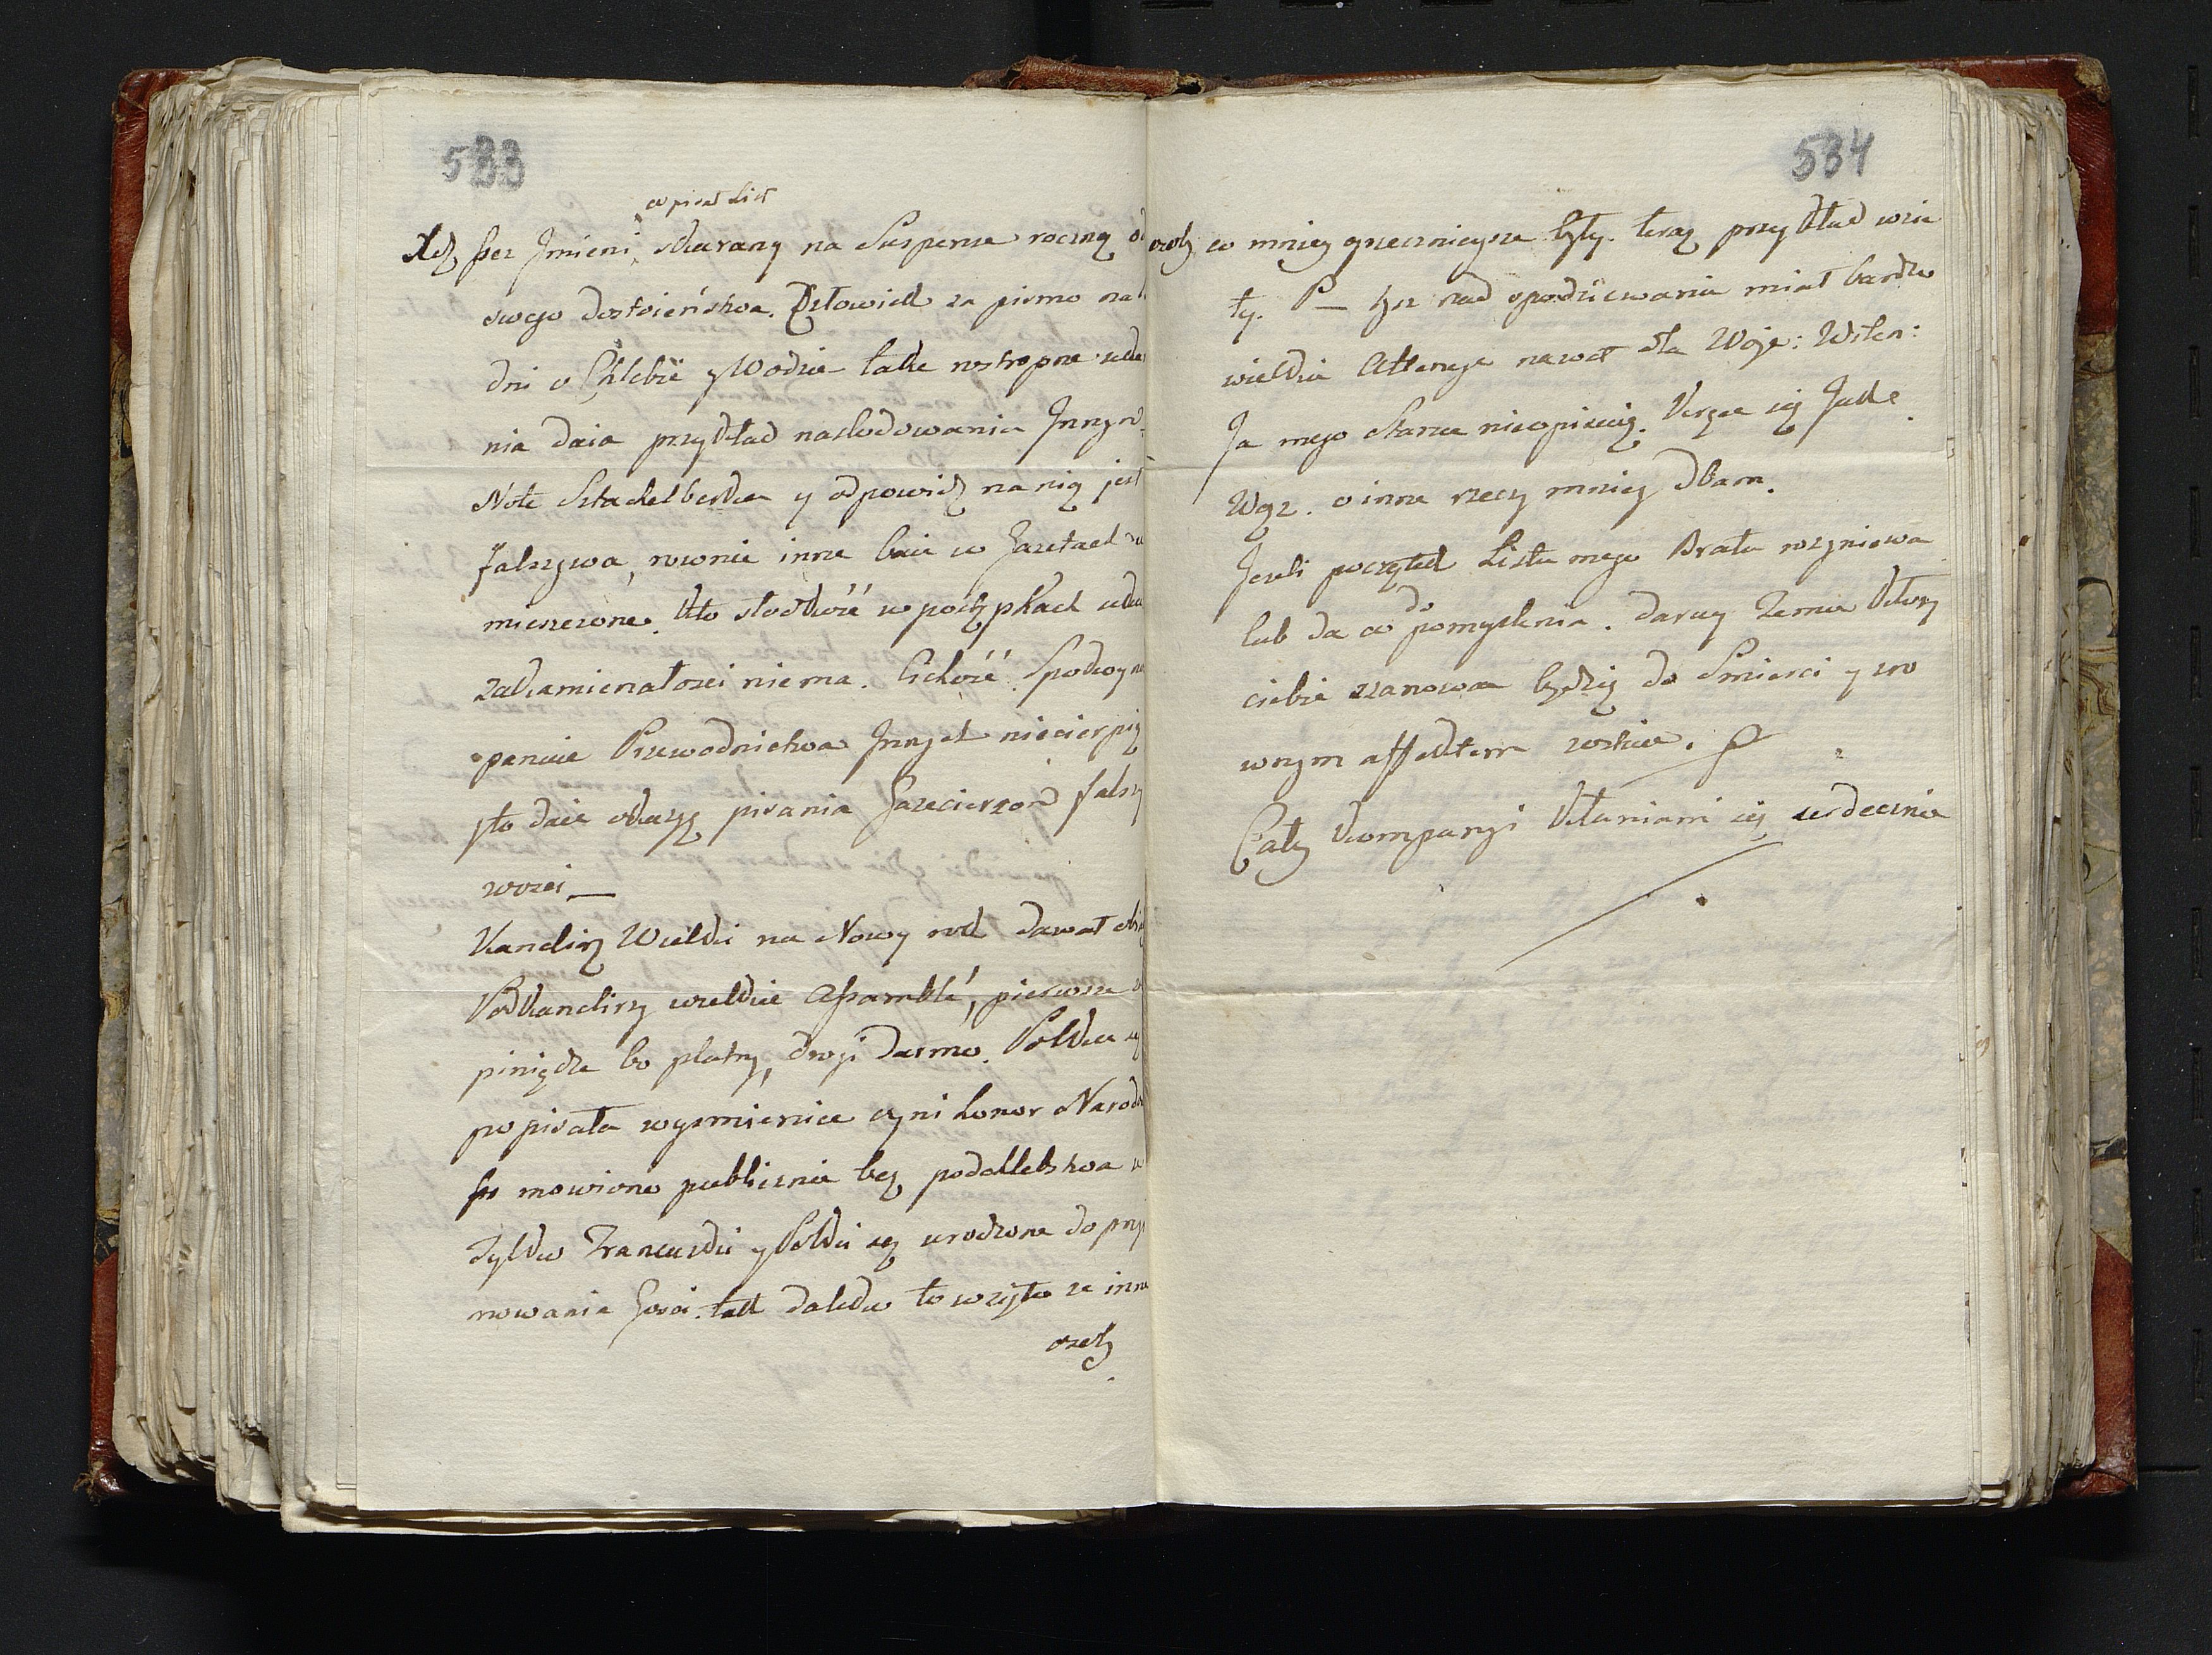 533
co pisał List
Xdz bez Jmieni, skarany na Suspense roczną od
swego dostoieństwa. Człowiek za pismo na
dni o Chlebie y Wodzie takie rostropne
nia daia przykład nasłodowania Jnnym
Note Sztackelberka y odpowidź na nią jest
falszywa, rownie inne baie w Gazetach
miesczone. Kto słodkość w postępkach
zakamienałosci niema. Cichość. Spokoyne
panuie Przewodnictwa Jnnych niecierpię
yto daie okazyę pisania Gazecierzom falszy
wosci —
Kanclirz Wielki na Nowy rok dawał
Podkanclirzy wielkie Assamblé, pierwsze
piniądze bo płatny, drugi darmo. Polka
popisała wysmienice czyni honor Narod
bo mowiono publicznie bez podchlebstwa
Tylko Francuski y Polki są urodzone do przy
mowania Gosci. tak daleko to wzięto ze inne
osoby
534
osoby co mniey grzecznieysze były. teraz przykład wzie
ły. P— Hr nad spodziewania miał bardzo
wielkie Attencye nawet dla Woje: Wilen:
Ja mego Stanu nieopisuię. Uczę się Jak
Wgz. o inne rzeczy mniey dbam.
Jezeli początek Listu mego Brata rozgniewa
lub da co do pomyslenia. daruy Temu Ktory
ciebie szanowac będzię do Smierci y zro
wnym affektem zostaie.
Cały Kompanyi kłaniam się serdecznie